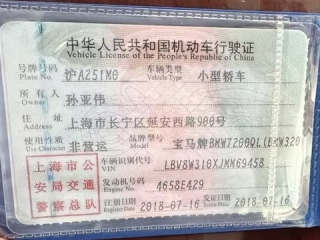 中华人民共和国机动车行驶证
Vehicle License of the People's Republic of China
号牌号码 沪A251M0 车辆类型 小型轿车
Plate No. Vehicle Type
所有人 孙亚伟
Owner
住址 上海市长宁区延安西路900号
Address
使用性质 非营运 品牌型号 宝马牌BMW7200QL(BMW320
Use Character Model
上海市公安局交通警察总队
车辆识别代号 LBV8W310XJMX69458
VIN
发动机号码 4658E429
Engine No.
注册日期 2018-07-16 发证日期 2018-07-16
Register Date Issue Date